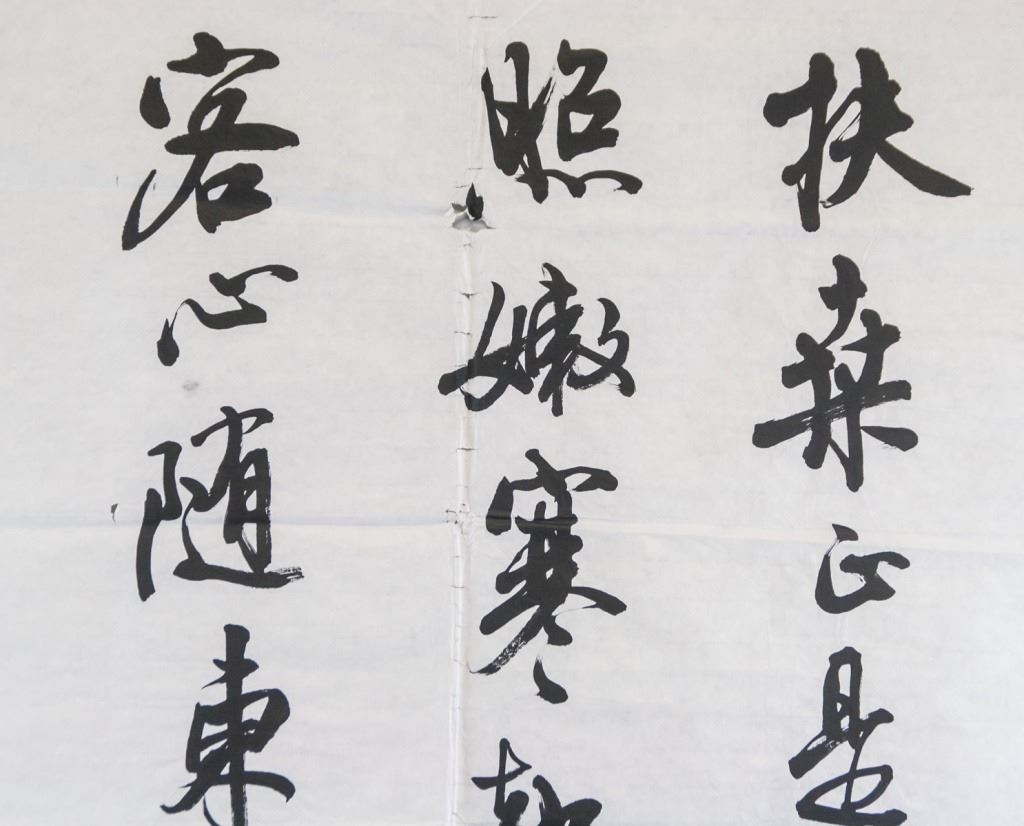 扶桑正是
照嫩寒却
客心随東